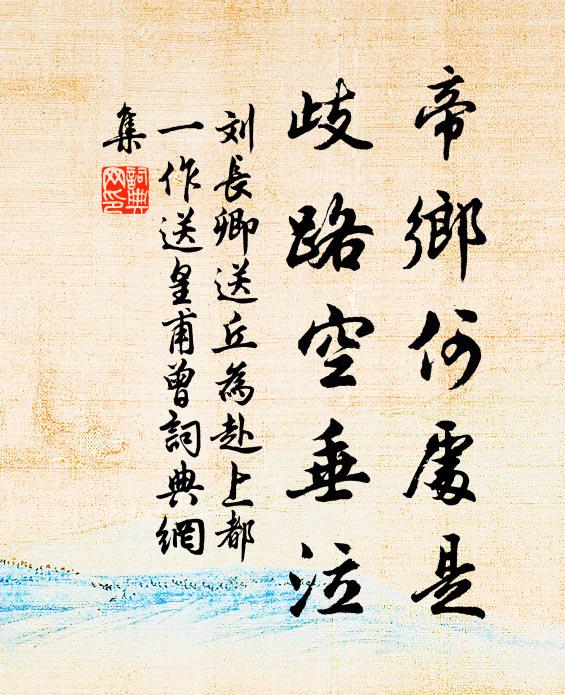 帝鄉何處是
歧路空垂泣
刘長卿送丘為赴上都
一作送皇甫曾詞典網
集
詞典
网印